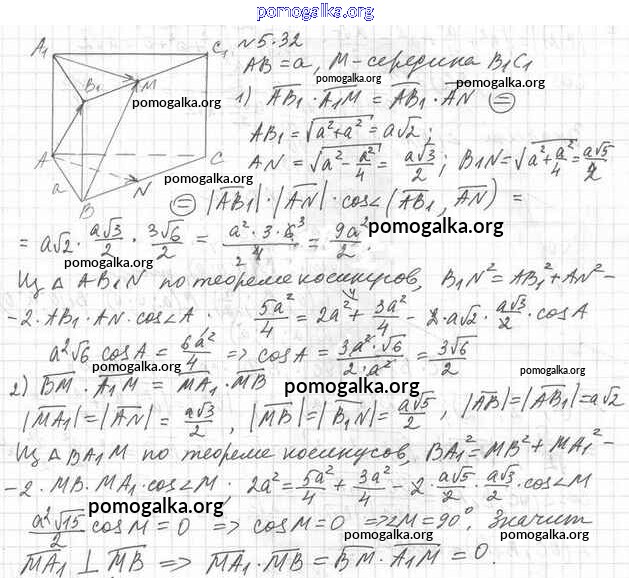 pomogalka.org
A₁ C₁ №5.32
AB = a, M - середина B₁C₁
B₁ M pomogalka.org
pomogalka.org 1) AB₁ · A₁M = AB₁ · AN (=)
AB₁ = √(a² + a²) = a√2; pomogalka.org
A C AN = √(a² - a²/4) = a√3/2; B₁N = √(a² + a²/4) = a√5/2
a B N pomogalka.org
(=) |AB₁| · |AN| · cos∠(AB₁, AN) =
= a√2 · a√3/2 · 3√6/2 = a²·3·6³/4 2 = 9a²/2. pomogalka.org
pomogalka.org
Из △ AB₁N по теореме косинусов, B₁N² = AB₁² + AN² -
- 2 · AB₁ · AN · cos∠A. 5a²/4 = 2a² + 3a²/4 - 2 · a√2 · a√3/2 · cosA
a²√6 cosA = 6a²/4 => cosA = 3a²·√6/2·a² = 3√6/2
pomogalka.org
2) BM · A₁M = MA₁ · MB pomogalka.org
|MA₁| = |AN| = a√3/2, |MB| = |B₁N| = a√5/2, |AB| = |AB₁| = a√2
pomogalka.org
Из △ BA₁M по теореме косинусов, BA₁² = MB² + MA₁² -
- 2 · MB · MA₁ · cos∠M; 2a² = 5a²/4 + 3a²/4 - 2 · a√5/2 · a√3/2 · cos∠M
pomogalka.org
a²√15/2 cosM = 0 => cosM = 0 => ∠M = 90°. Значит
MA₁ ⊥ MB => MA₁ · MB = BM · A₁M = 0.
pomogalka.org